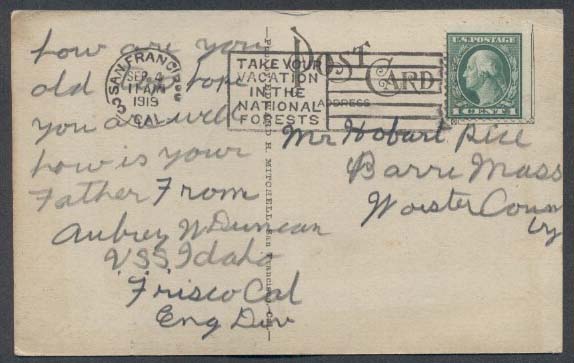 how are you
old hope
you are well
how is your
Father From
Aubrey W Duncan
USS Idaho
Frisco Cal
Eng Div
SAN FRANCISCO
SEP 4
11 AM
1919
CAL.
TAKE YOUR
VACATION
IN THE
NATIONAL
FORESTS
POST CARD
ADDRESS
U.S. POSTAGE
1 CENT 1
Mr Hobart Rice
Barre Mass
Woister Coun
ty
H. MITCHELL, San Francisco, Cal.